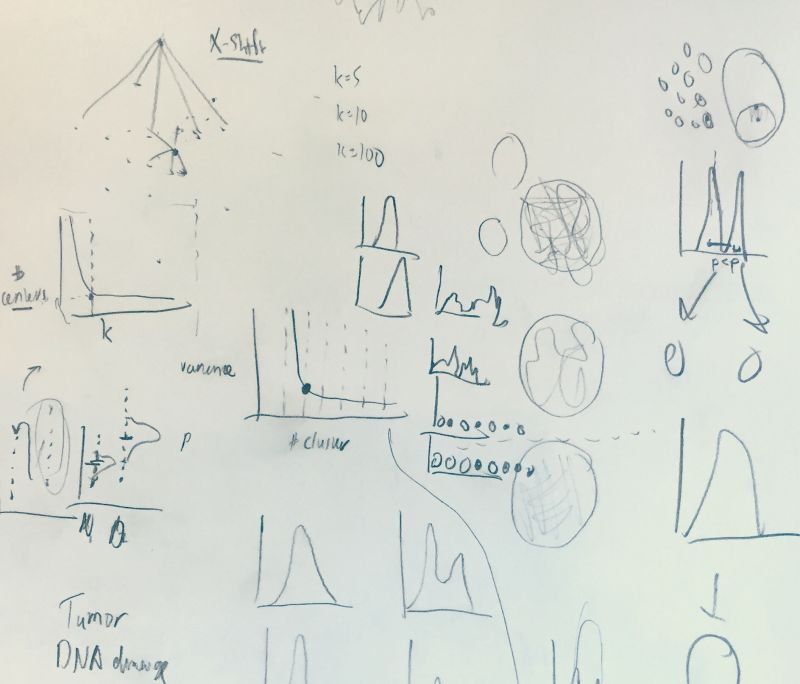 X-shift
k=5
k=10
k=100
p<p
# centers
k
variance
# cluster
p
Tumor
DNA damage